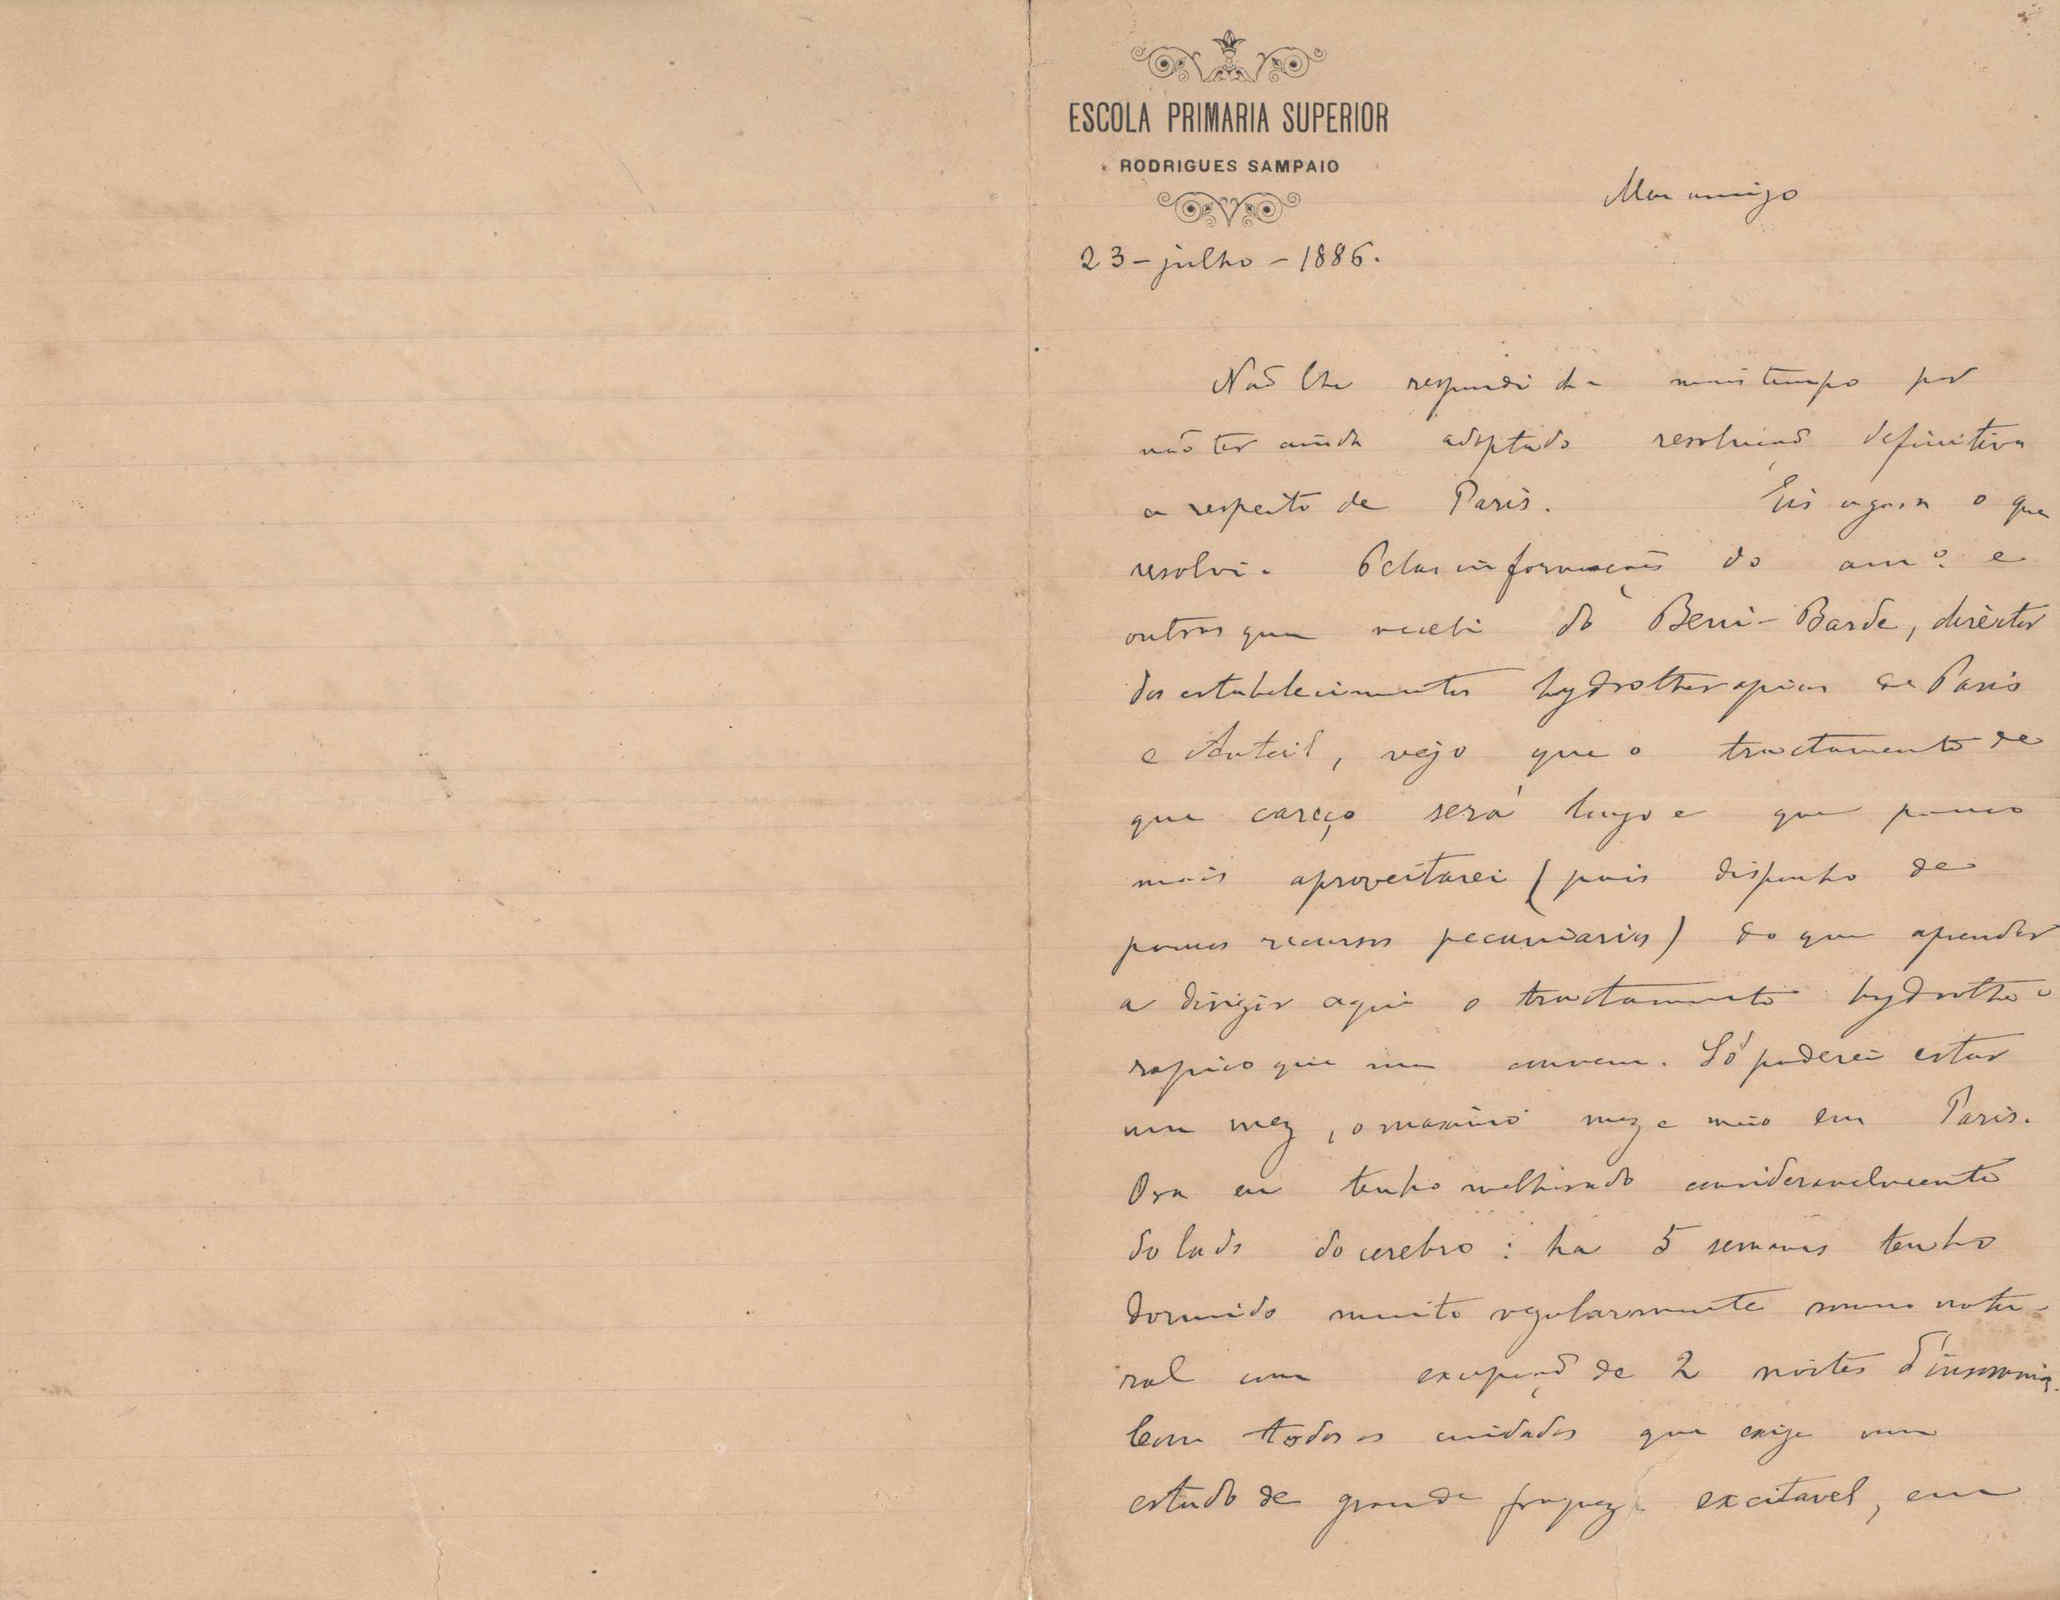 ESCOLA PRIMARIA SUPERIOR
RODRIGUES SAMPAIO
Meu amigo
23-julho-1886.
Não lhe respondi ha mais tempo por
não ter ainda adoptado resolução definitiva
a respeito de Paris. Eis agora o que
resolvi. Pelas informações do am.º e
outras que recebi do Beni-Barde, director
dos estabelecimentos hydrotherapicos de Paris
e Auteil, vejo que o tractamento de
que careço será longo e que pouco
mais aproveitarei (pois disponho de
poucos recursos pecuniarios) do que aprender
a dirigir aqui o tractamento hydrothe-
rapico que me convem. Só poderei estar
um mez, o maximo mez e meio em Paris.
Ora eu tenho melhorado consideravelmente
do lado do cerebro: ha 5 semanas tenho
dormido muito regularmente somno natu-
ral com excepção de 2 noites d'insomnia.
Com todos os cuidados que exige um
estado de grande fraqueza excitavel, em